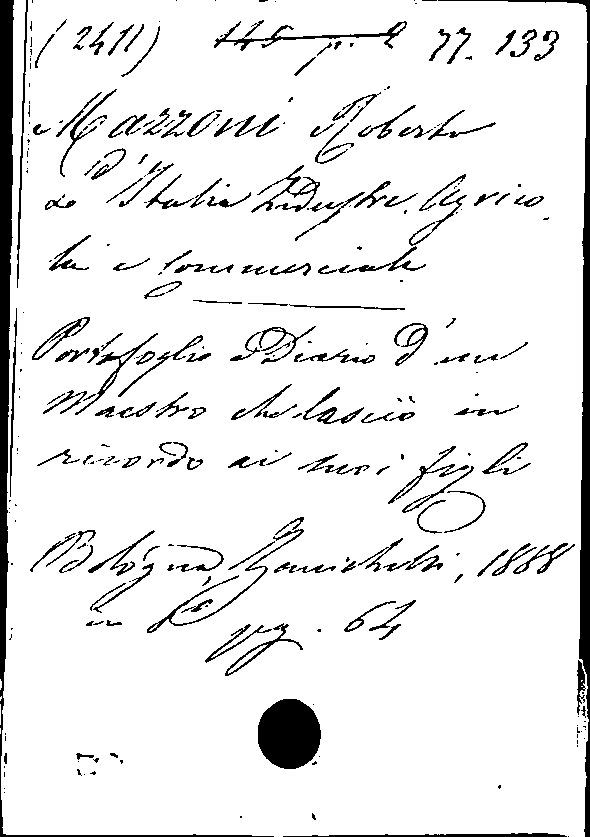 (2411) 145 p. 2 77. 133
Mazzoni Roberto
L'Italia Industre. Agrico
la e Commerciale
Portafoglio o Diario d'un
Maestro che lasciò in
ricordo ai suoi figli
Bologna, Zanichelli, 1888
in 8° pg. 64